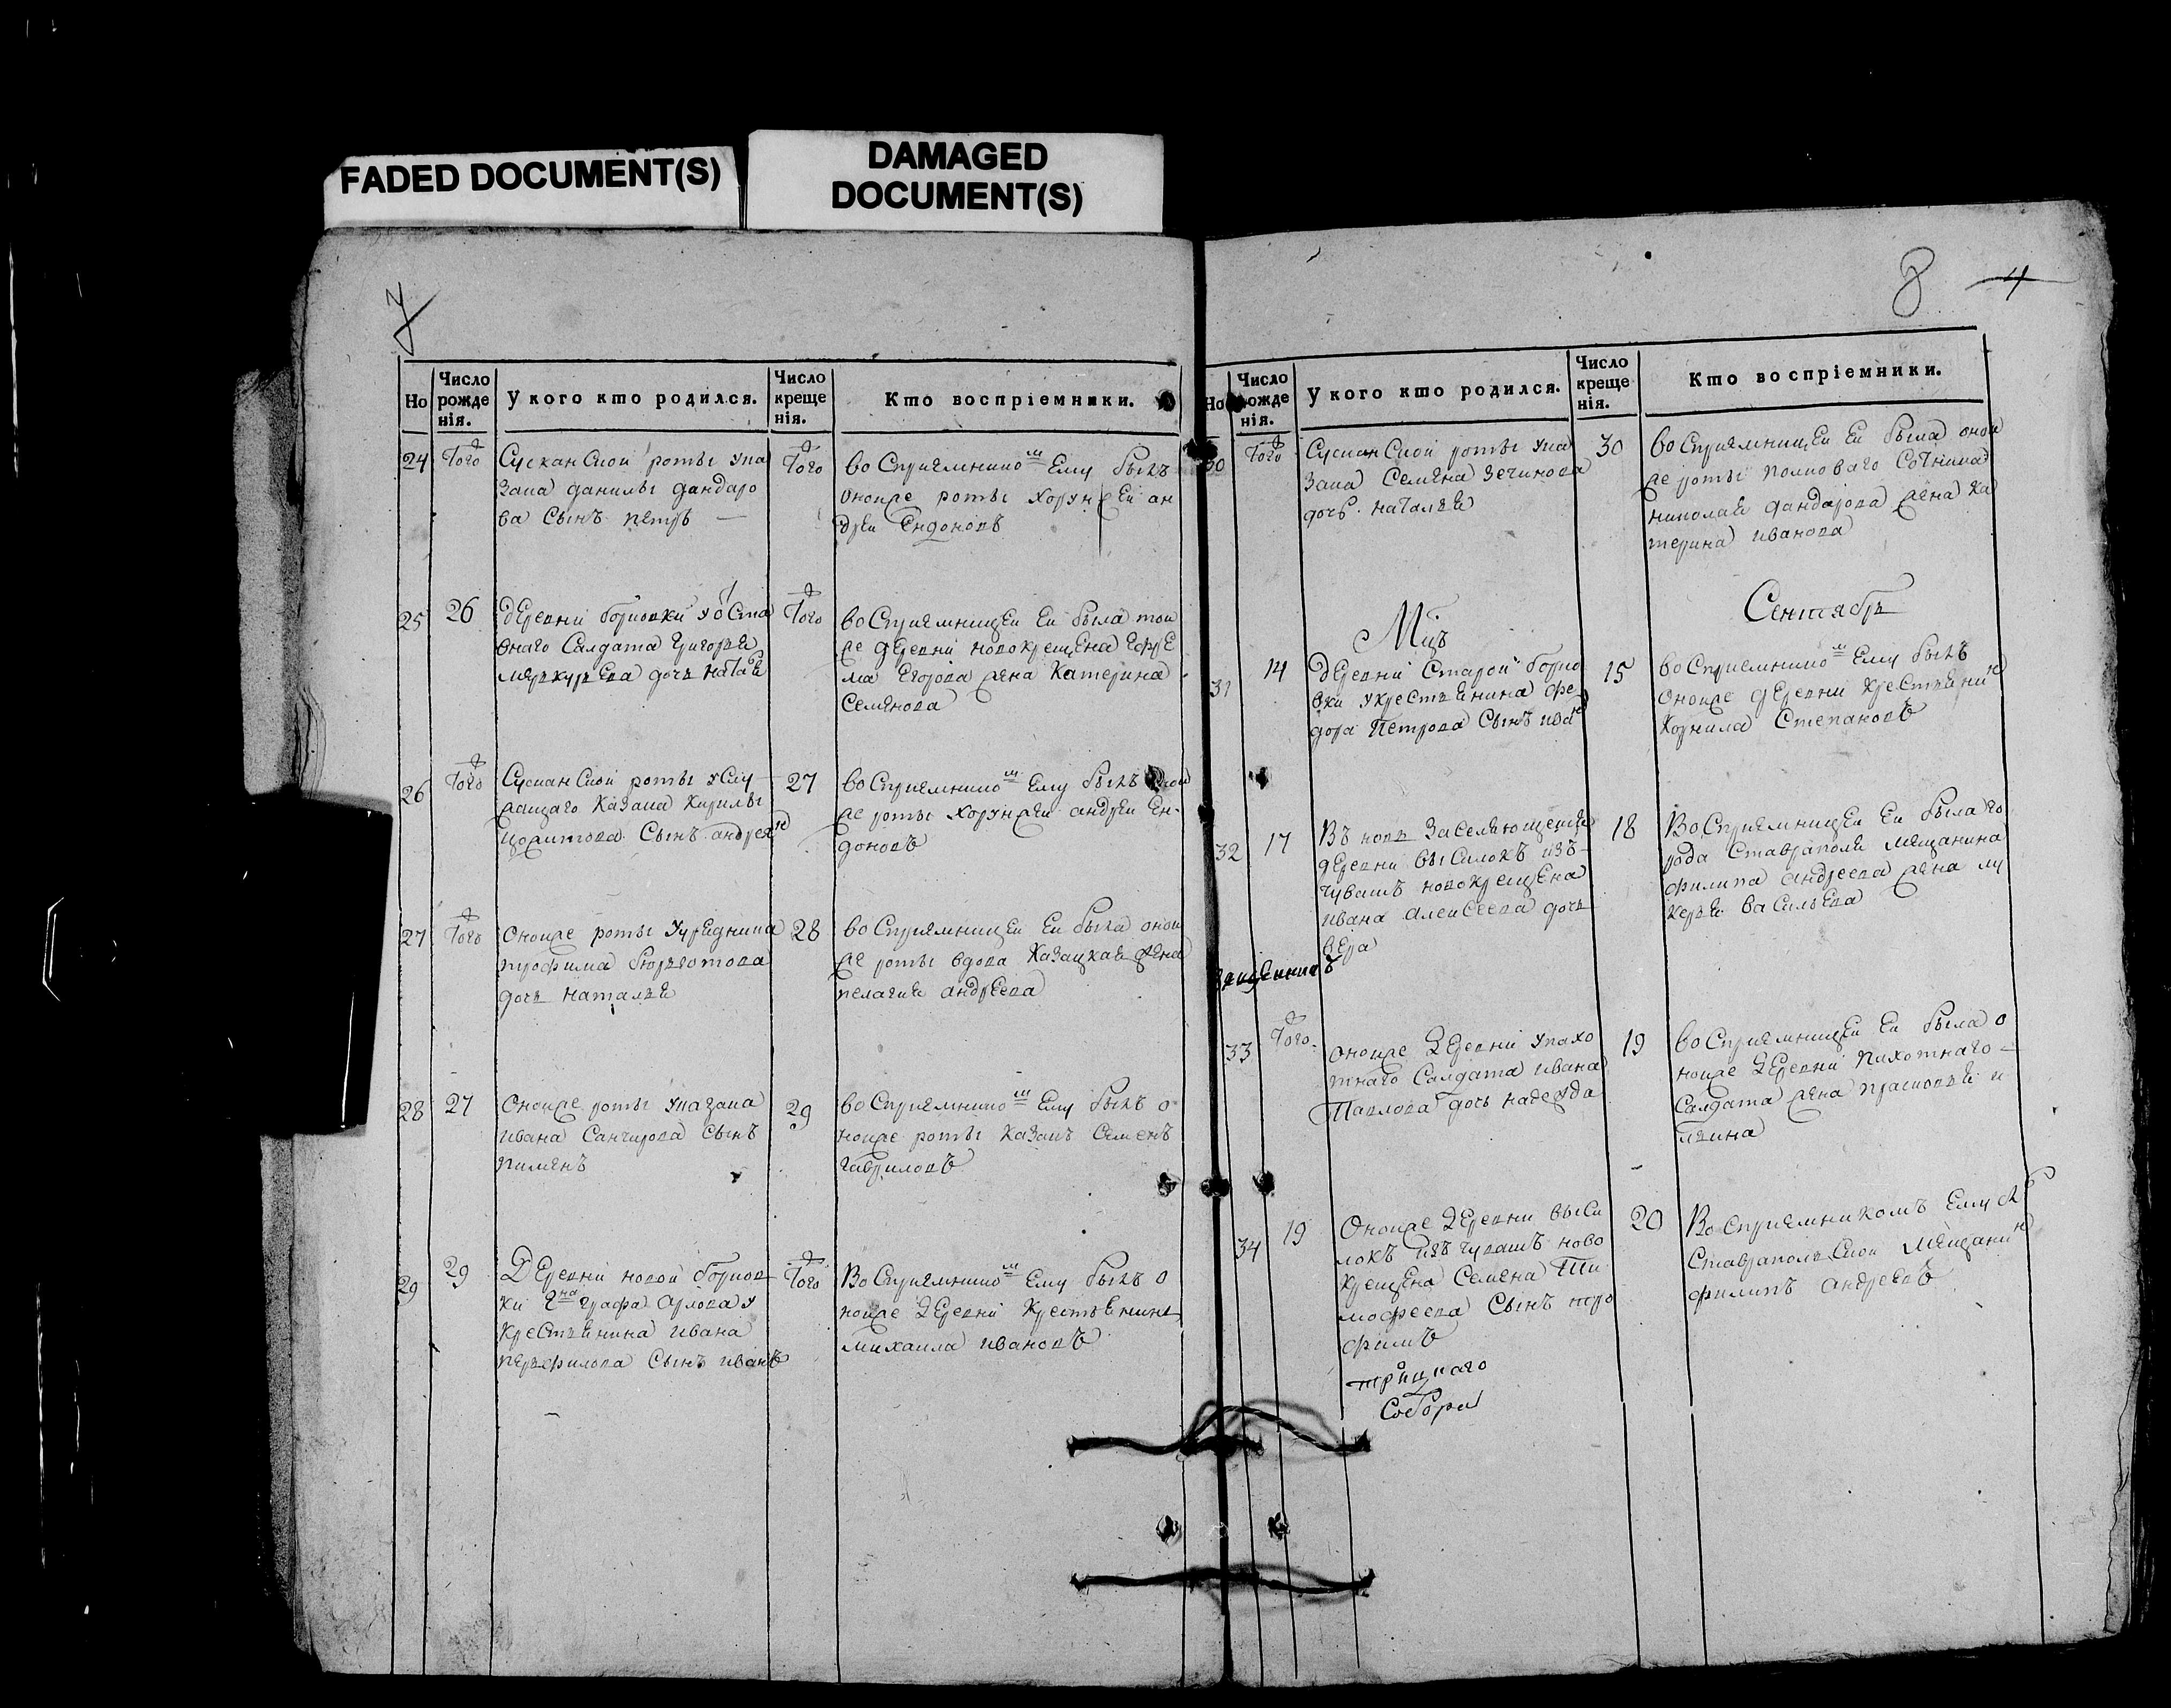 FADED DOCUMENT(S)
DAMAGED
DOCUMENT(S)
7
Но
Число
рожде
нія.
У кого кто родился.
Число
креще
нія.
Кто воспріемники.
24
Того
Сускан Ской роты у ка
зака данилы дандаро
ва Сынъ петръ —
Того
воспрiемнико м Ему былъ
оной же роты хорунжей ан
дрей Ендоновъ
25
26
деревни борковки у о Ста
внаго Салдата Григорья
меркурьева дочь Наталья
Того
воспрiемницей Ей была той
же деревни новокрещена ефре
ма Егорова жена Катерина
Семенова
26
Того
Сускан Ской роты у Слу
жащаго Казака Кирилы
Сынъ андреян
27
воспрiемнико м Ему былъ оной
же роты хорунжей андрей Ен-
доновъ
27
Того
Оной же роты Урядника
трофима
дочь наталья
28
воспрiемницей Ей была оной
же роты вдова Казацкая жена
пелагия андреева
28
27
Оной же роты у казака
ивана Санчирова сынъ
пименъ
29
воспрiемнико м Ему былъ о
ной же роты казакъ Семенъ
гавриловъ
29
29
Деревни новой борков
ки Г на графа Арлова у
крестьянина ивана
перфилова Сынъ иванъ
Того
Воспрiемнико м Ему былъ о
ной же деревни Крестьянинъ
михаила ивановъ
8 4
Но
Число
рожде
нія.
У кого кто родился.
Число
креще
нія.
Кто воспріемники.
30
Того
Сускан Ской роты у ка
зака Семена Зечикова
дочь наталья
30
воспрiемницей Ей была оной
же роты полковаго Сотника
николая дандарова жена ка
терина иванова
Мцъ
Сентябрь
31
14
деревни Старой борко
вки у крестьянина фе
дора Петрова Сынъ
15
воспрiемнико м Ему былъ
оной же деревни крестьянин
Корнила Степановъ
32
17
Въ новь заселяющейся
деревни выселокъ изъ
чувашъ новокрещена
ивана алексеева дочь
вера
18
Воспрiемницей Ей была го
рода Ставраполя мещанина
филипа андреева жена лу
керья васильева
33
Того
оной же деревни у пахо
тнаго Салдата ивана
Павлова дочь надежда
19
воспрiемницей Ей была о
ной же деревни пахотнаго
Салдата жена прасковья и
льина
34
19
Оной же деревни высе
локъ изъ чувашъ ново
крещена Семена Ти
мофеева Сынъ тро
фимъ
20
Воспрiемникомъ Ему б
Ставрапольской мещанин
филипъ андреевъ
троицкаго
Собора